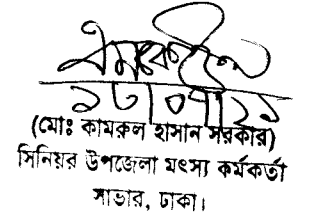 ১৮/০৭/২১
(মোঃ কামরুল হাসান সরকার)
সিনিয়র উপজেলা মৎস্য কর্মকর্তা
সাভার, ঢাকা।